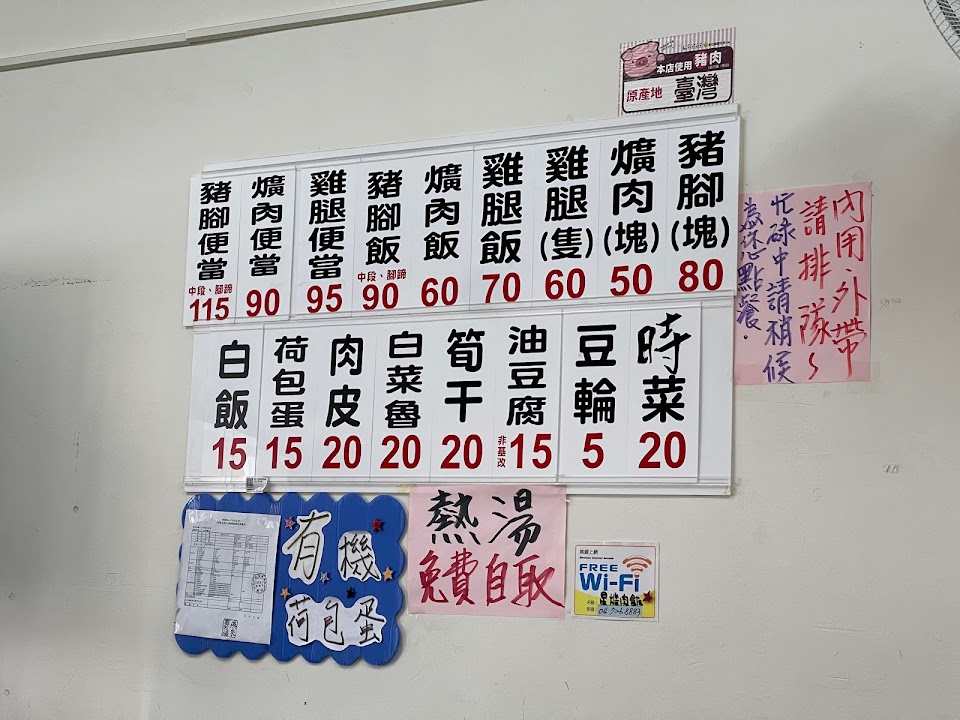 本店使用豬肉
原產地 臺灣
豬腳(塊) 80
爌肉(塊) 50
雞腿(隻) 60
雞腿飯 70
爌肉飯 60
豬腳飯 中段、腳蹄 90
雞腿便當 95
爌肉便當 90
豬腳便當 中段、腳蹄 115
時菜 20
豆輪 5
油豆腐 非基改 15
筍干 20
白菜魯 20
肉皮 20
荷包蛋 15
白飯 15
內用、外帶
請排隊~
忙碌中請稍候
為您點餐.
有機
荷包蛋
熱湯
免費自取
無線上網
FREE
Wi-Fi